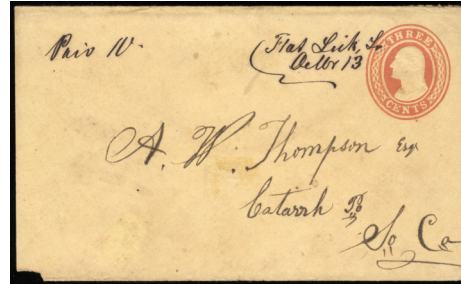 Flat Lick, La
Octbr 13
THREE
CENTS
A. W. Thompson Esqr
Catarrh
So Ca